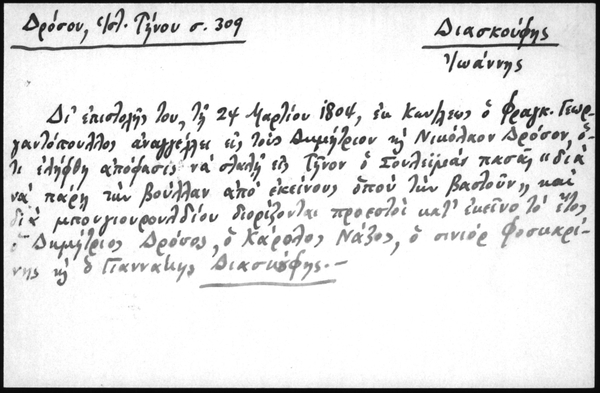 Δρόσου, Ιστ. Τήνου σ. 309
Διασκούφης
Ἰωάννης
Δι' ἐπιστολῆς του, τῇ 24 Μαρτίου 1804, ἐκ Κων/λεως ὁ Φραγκ. Γεωρ-
γαντόπουλλος ἀναγγέλλει εἰς τοὺς Δημήτριον κ Νικόλαον Δρόσον, ὅ-
τι ἐλήφθη ἀπόφασις νὰ σταλῇ εἰς Τῆνον ὁ Σουλεϊμὰν πασᾶς "διὰ
νὰ πάρῃ τὴν βούλλαν ἀπὸ ἐκείνους ὁποῦ τὴν βαστοῦν", καὶ
διὰ μπουγιουρουλδίου διορίζονται προεστοὶ κατ' ἐκεῖνο τὸ ἔτος
ὁ Δημήτριος Δρόσος, ὁ Κάρολος Νάζος, ὁ σινιὸρ Φοσκαρί-
νης κ ὁ Γιαννάκης Διασκούφης.-